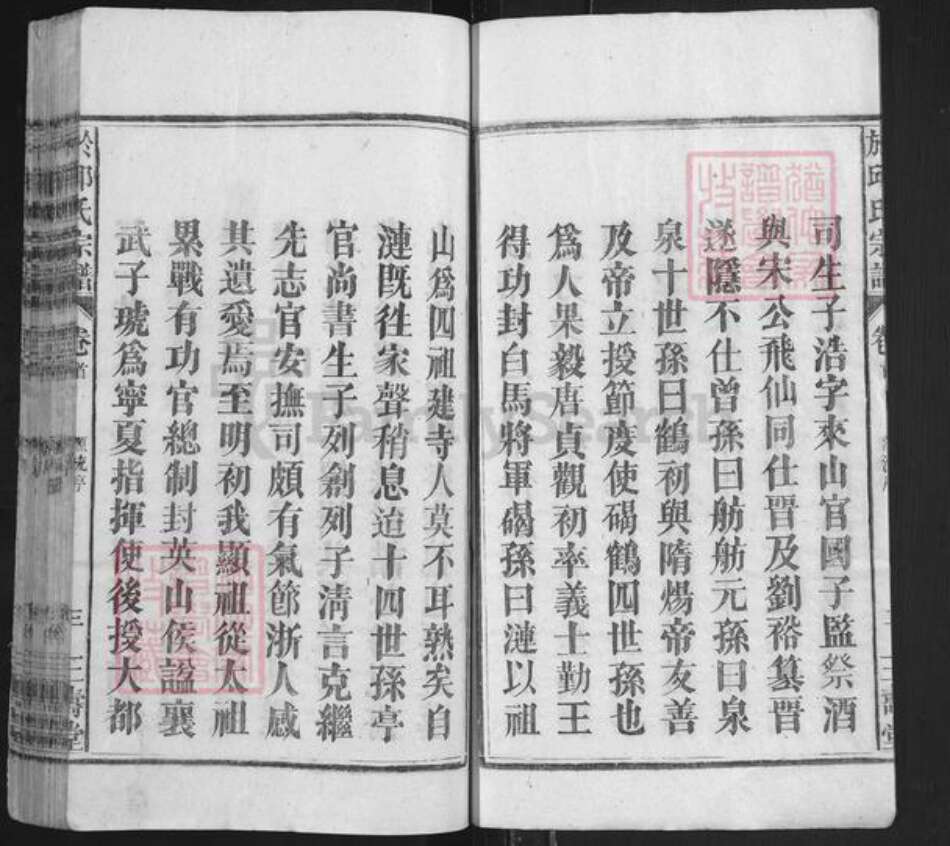 於邱氏宗譜
卷首
三
三壽堂
司生子浩字來山官國子監祭酒
與宋公飛仙同仕晋及劉裕簒晋
遂隱不仕曾孫曰舫舫元孫曰泉
泉十世孫曰鶴初與隋煬帝友善
及帝立授節度使碣鶴四世孫也
爲人果毅唐貞觀初率義士勤王
得功封白馬將軍碣孫曰漣以祖
山爲四祖建寺人莫不耳熟矣自
漣既徃家聲稍息迨十四世孫亭
官尚書生子列劍列子淸言克繼
先志官安撫司頗有氣節浙人感
其遺愛焉至明初我顯祖從太祖
累戰有功官總制封英山侯諡襄
武子琥爲寧夏指揮使後授大都
於邱氏宗譜
卷首
三
三壽堂
FamilySearch